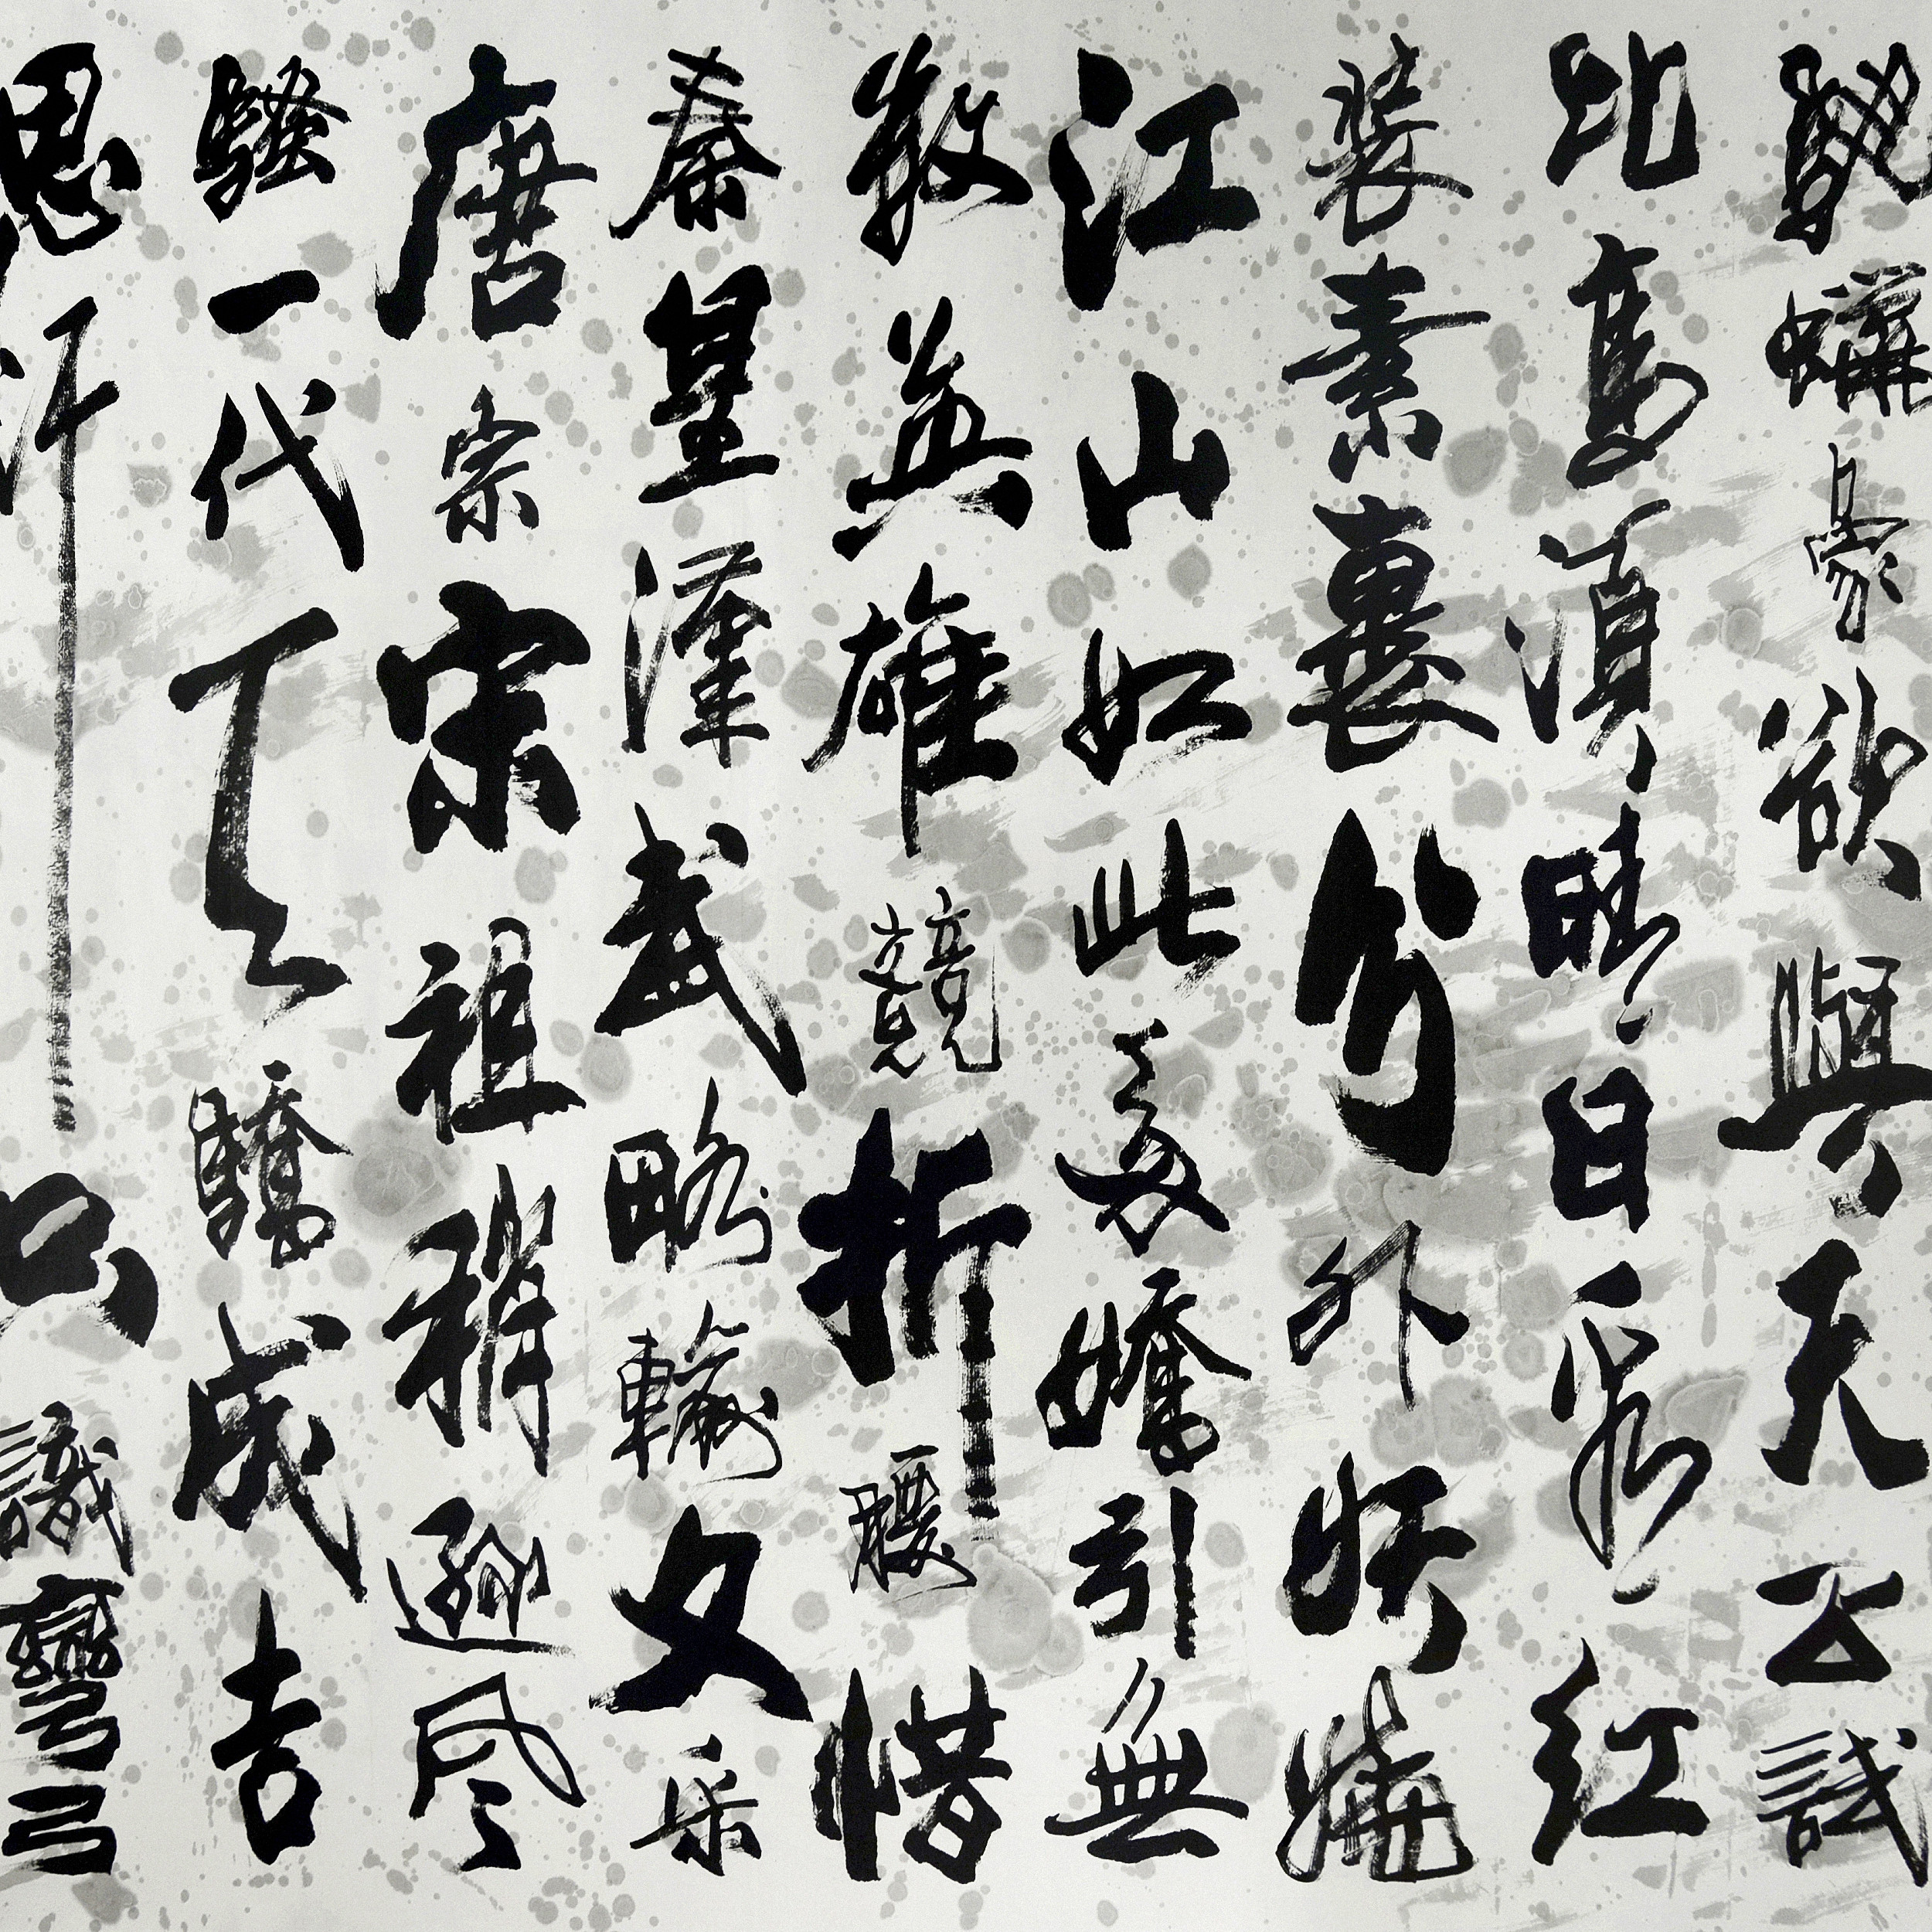 馳蠟象欲與天公試
比高須晴日看紅
裝素裹分外妖嬈
江山如此多嬌引無
數英雄競折腰惜
秦皇漢武略輸文采
唐宗宋祖稍遜風
騷一代天驕成吉
思汗只識彎弓